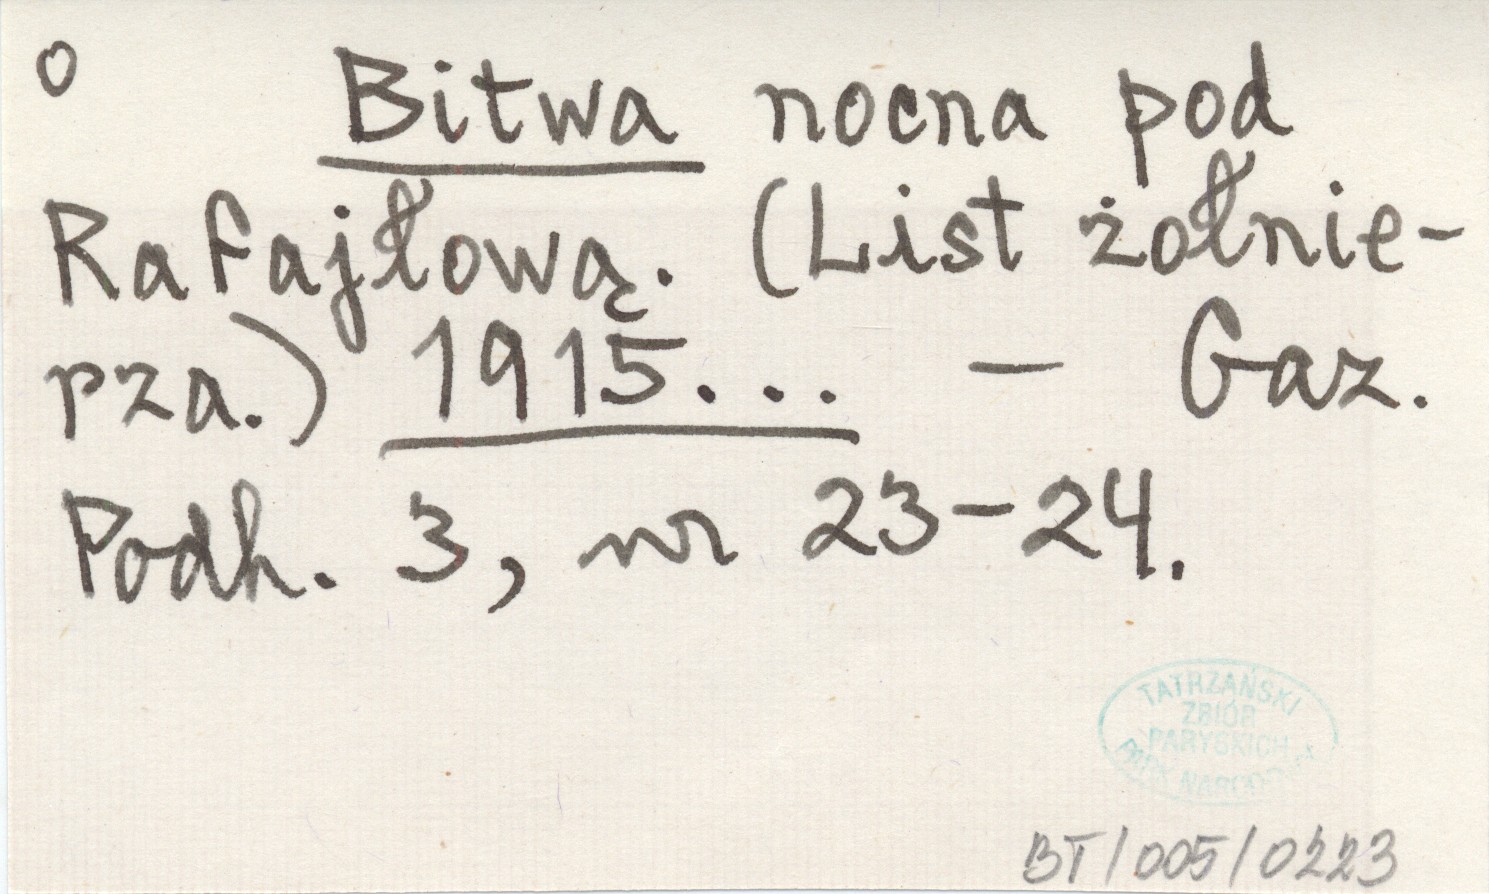 o Bitwa nocna pod
Rafajłową. (List żołnie-
rza.) 1915... — Gaz.
Podh. 3, nr 23-24.
TATRZAŃSKI
ZBIÓR
PARYSKICH
PARK NARODOWY
BT/005/0223